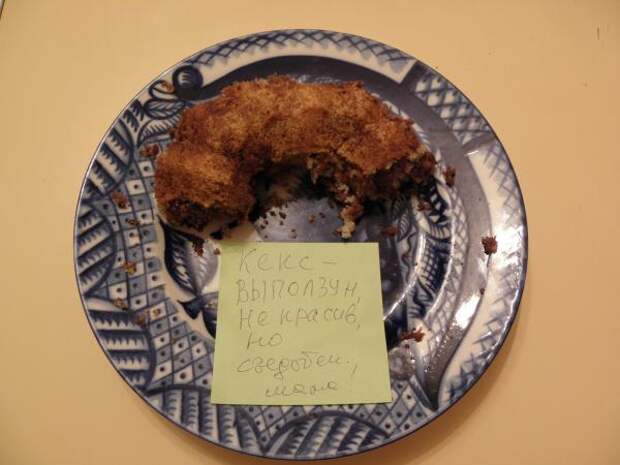 Кекс -
выползун,
не красив,
но
съедобен,
мама!